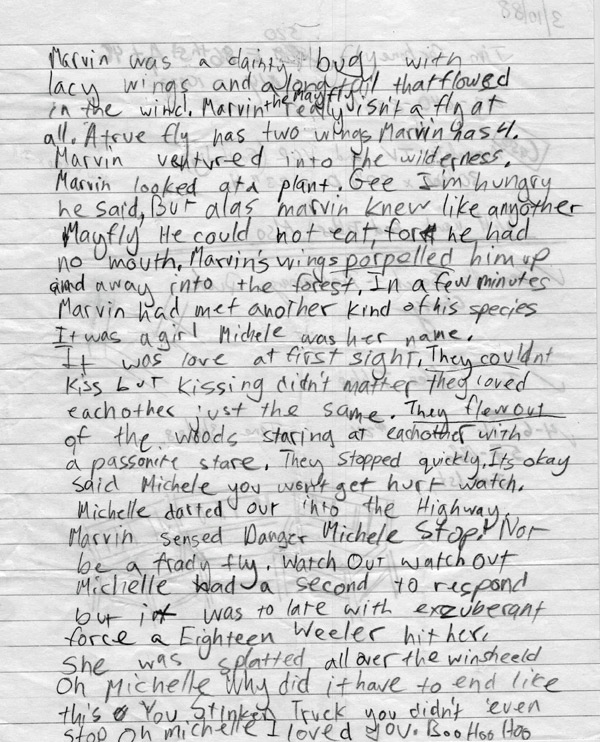 3/10/88
Marvin was a dainty bug with
lacy wings and a long tail that flowed
in the wind. Marvin the Mayfly really isn't a fly at
all. A true fly has two wings Marvin has 4.
Marvin ventured into the wilderness.
Marvin looked at a plant. Gee I'm hungry
he said, But alas marvin knew like anyother
Mayfly He could not eat, for he had
no mouth. Marvin's wings porpelled him up
and away into the forest. In a few minutes
Marvin had met another kind of his species
It was a girl Michele was her name.
It was love at first sight. They couldnt
Kiss but kissing didn't matter they loved
eachother just the same. They flew out
of the woods staring at eachother with
a passonite stare. They stopped quickly. Its okay
said Michele you won't get hurt watch.
Michelle darted out into the Highway.
Marvin sensed Danger Michele Stop! Not
be a frady fly. Watch Out watch Out
Michelle had a second to respond
but it was to late with exzuberant
force a Eighteen Weeler hit her.
She was splatted all over the winsheeld
Oh Michelle Why did it have to end like
this You Stinken Truck you didn't even
stop Oh michelle I loved you. Boo Hoo Hoo